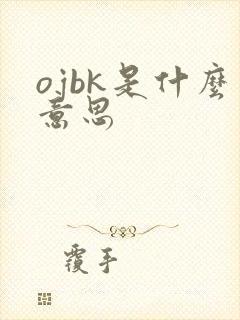 ojbk是什麼
意思
覆手